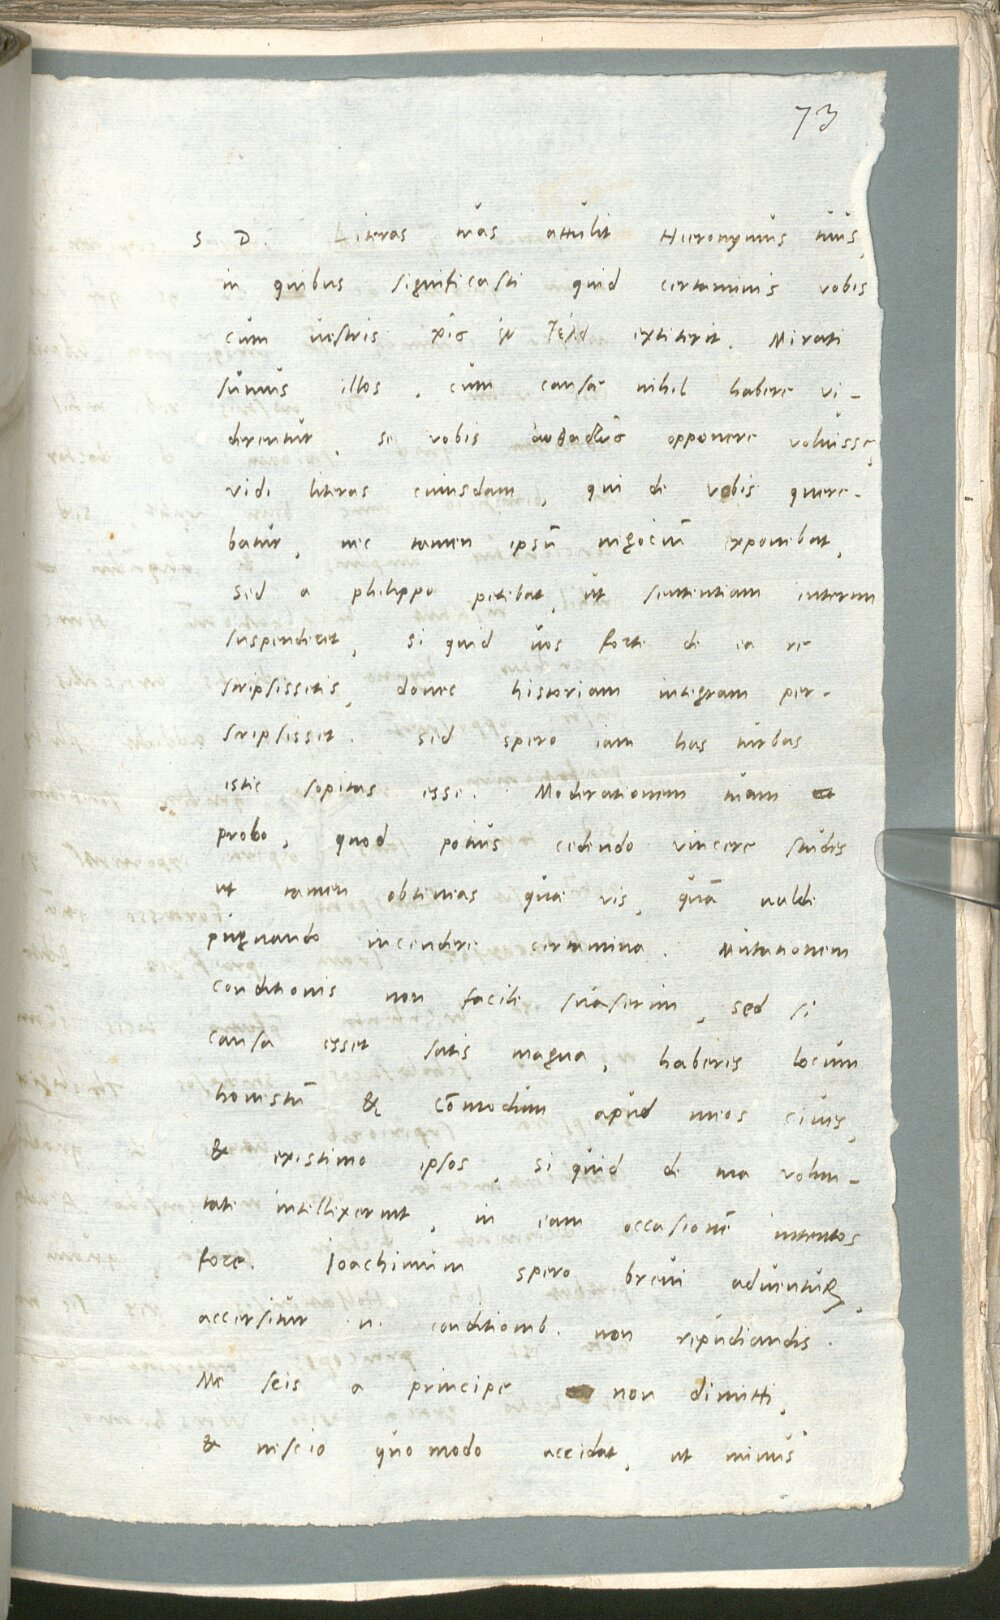 73
S D. Literas tuas attulit Hieronymus tuus,
in quibus significasti quid certaminis vobis
cum vestris extiterit. Mirati
sumus illos, cum causae nihil habere vi-
derentur, se vobis opponere voluisse,
vidi literas cuiusdam, qui de vobis quere-
batur, nec tamen ipsū negociū exponebat,
sed a philippo petebat, ut sententiam interim
suspenderet, si quid vos forte de ea re
scripsissetis, donec historiam integram per-
scripsisset. Sed spero iam has turbas
istic sopitas esse. Moderationem tuam
probo, quod potius cedendo vincere studes
ut tamen obtineas quae vis, quā valde
pugnando incendere certamina. Mutationem
conditionis non facile suaserim, sed si
causa esset satis magna, haberes locum
honestū & cōmodum apud meos cives,
& existimo ipsos, si quid de tua volun-
tate intellexerint, in eam occasionē intentos
fore. Ioachimum spero brevi adventuꝝ,
accersitur n. conditionib. non repudiandis.
Me scis a principe non dimitti,
& nescio quo modo accidat, ut minus